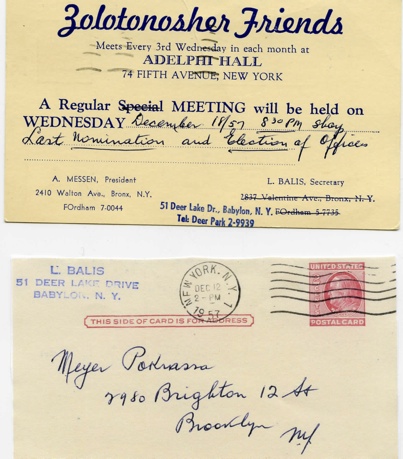 Zolotonosher Friends
Meets Every 3rd Wednesday in each month at
ADELPHI HALL
74 FIFTH AVENUE, NEW YORK
A Regular Special MEETING will be held on
WEDNESDAY December 18/57 8 30 PM sharp
Last Nomination and Election of Offices
A. MESSEN, President
2410 Walton Ave., Bronx, N.Y.
FOrdham 7-0044
L. BALIS, Secretary
2837 Valentine Ave., Bronx, N. Y.
51 Deer Lake Dr., Babylon, N. Y. FOrdham 5-7735
Tel: Deer Park 2-9939
L. BALIS
51 DEER LAKE DRIVE
BABYLON, N. Y.
NEW YORK, N.Y. 1
DEC 12
2 - PM
1957
UNITED STATES
POSTAL CARD
THIS SIDE OF CARD IS FOR ADDRESS
Meyer Pokrassa
2980 Brighton 12 St
Brooklyn NY